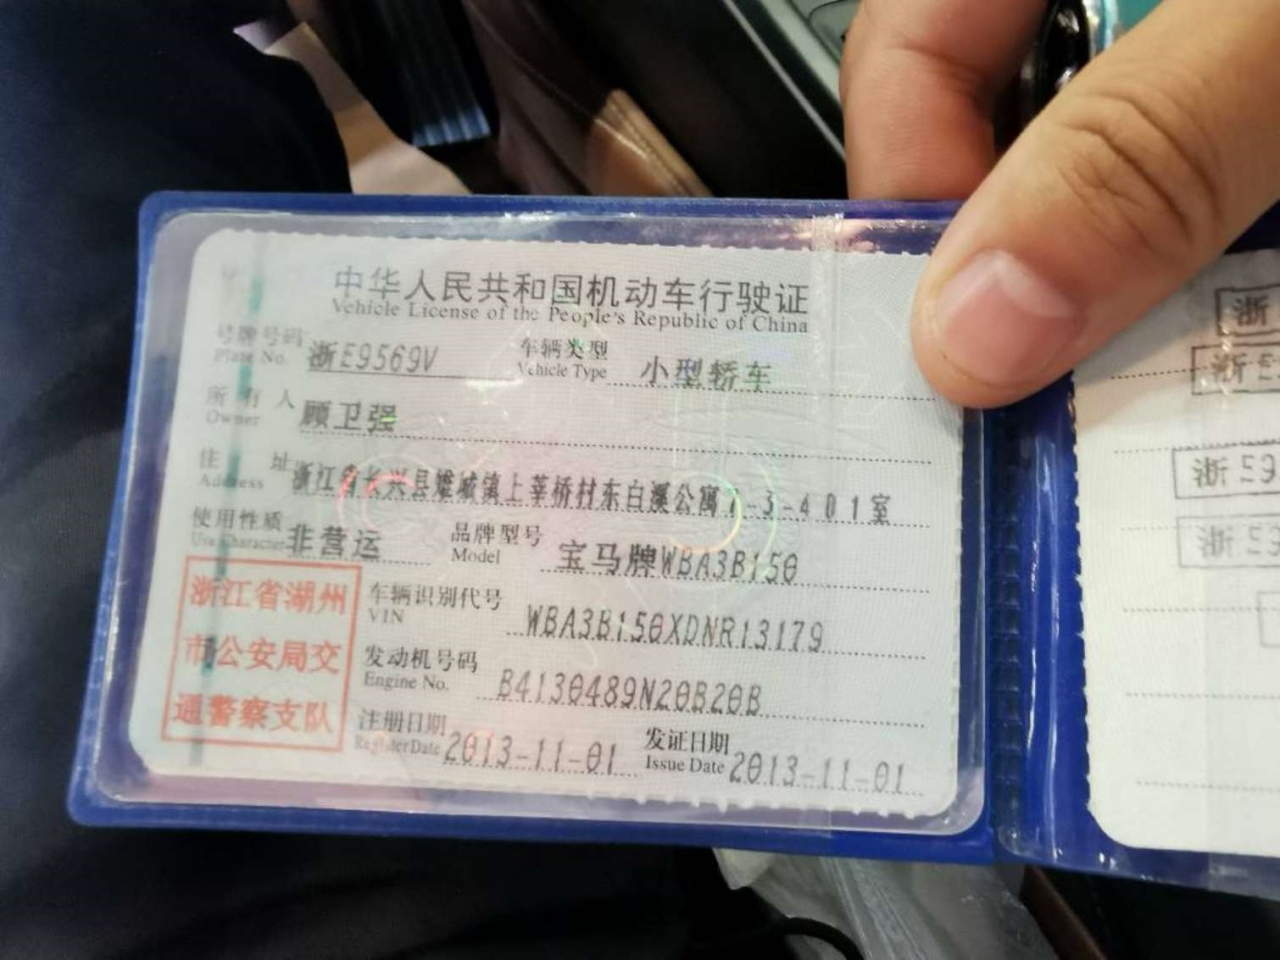 中华人民共和国机动车行驶证
Vehicle License of the People's Republic of China
号牌号码 浙E9569V 车辆类型 小型轿车
Plate No. Vehicle Type
所有人 顾卫强
Owner
住址 浙江省长兴县雉城镇上莘桥村东白溪公寓7-3-401室
Address
使用性质 非营运 品牌型号 宝马牌WBA3B150
Use Character Model
浙江省湖州
市公安局交
通警察支队
车辆识别代号 WBA3B150XDNR13179
VIN
发动机号码 B4130489N20B20B
Engine No.
注册日期 2013-11-01 发证日期 2013-11-01
Register Date Issue Date
浙
浙 E
浙 E9
浙 E9